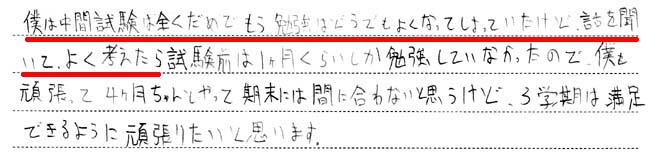 僕は中間試験は全くだめでもう勉強はどうでもよくなってしまっていたけど、話を聞
いて、よく考えたら試験前は1ヶ月くらいしか勉強していなかったので、僕も
頑張って4ヶ月ちゃんとやって期末には間に合わないと思うけど、3学期は満足
できるように頑張りたいと思います。